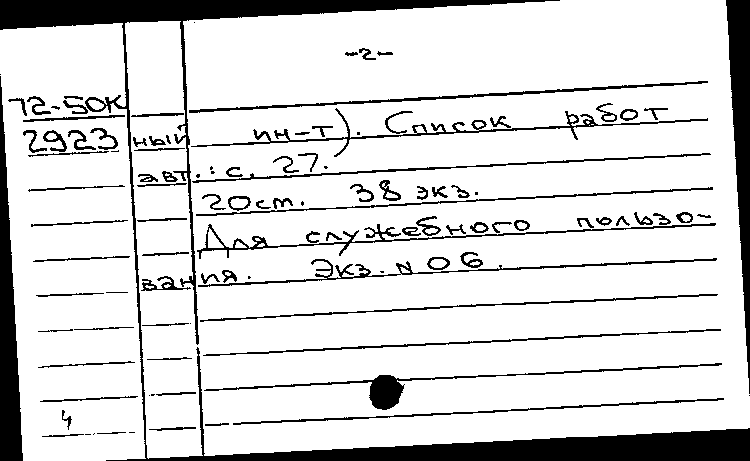 -2-
72-50К
2923 ный ин-т). Список работ
авт.: с. 27.
20см. 38 экз.
Для служебного пользо-
вания. Экз. N 06.
4